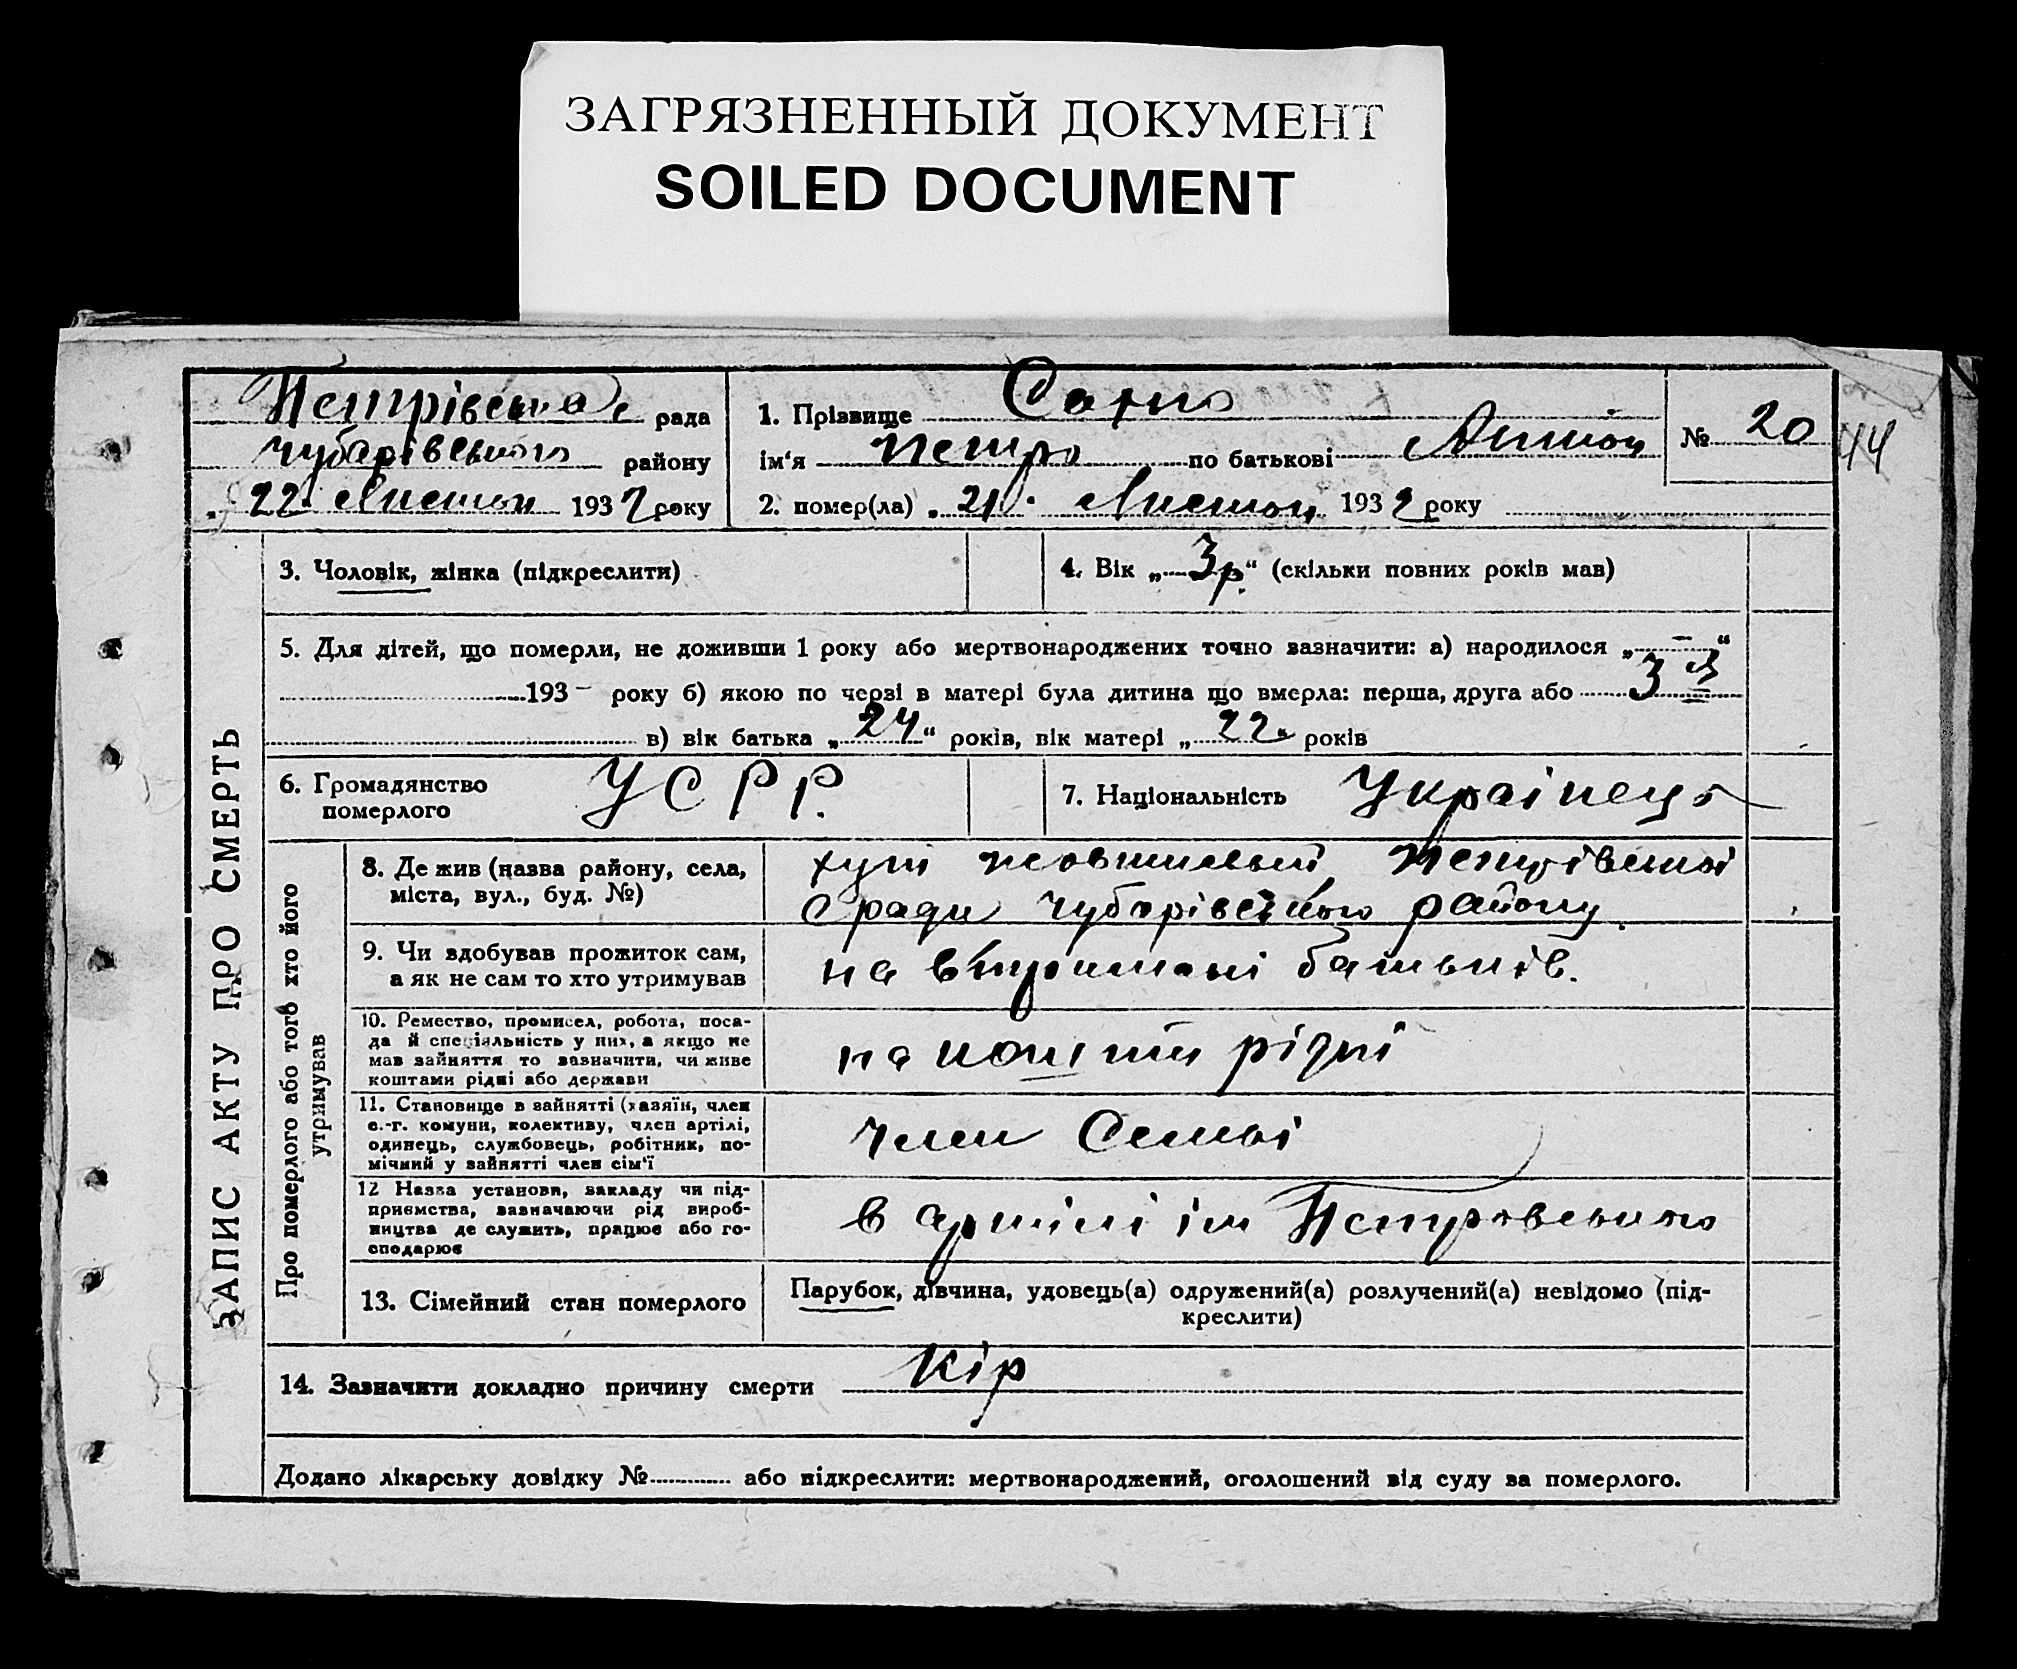 ЗАГРЯЗНЕННЫЙ ДОКУМЕНТ
SOILED DOCUMENT
Петрівська с рада
Чубарівського району
„ 22 " Листоп 1932 року
1. Прізвище
ім‘я Петро по батькові Антон
№ 20
44
2. помер(ла) „ 21 " Листоп 1932 року
ЗАПИС АКТУ ПРО СМЕРТЬ
3. Чоловік, жінка (підкреслити)
4. Вік „ 3 р. “ (скільки повних років мав)
5. Для дітей, що померли, не доживши 1 року або мертвонароджених точно зазначити: а) народилося „ — “
193 – року б) якою по черзі в матері була дитина що вмерла: перша, друга або 3 я
в) вік батька „ 24 “ років, вік матері „ 22 " років
6. Громадянство
померлого
УСРР.
7. Національність Українець
Про померлого або того хто його
утримував
8. Де жив (назва району, села,
міста, вул., буд. №)
хут Петрівської
с ради Чубарівського району.
9. Чи здобував прожиток сам,
а як не сам то хто утримував
на втримані батьків.
10. Ремество, промисел, робота, поса-
да й спеціяльність у них, а якщо не
мав зайняття то зазначити, чи живе
коштами рідні або держави
на кошти рідні
11. Становище в зайнятті (хазяїн, член
с.-г. комуни, колективу, член артілі,
одинець, службовець, робітник, по-
мічний у зайнятті член сім‘ї
член Семьі
12 Назва установи, закладу чи під-
приємства, зазначаючи рід вироб-
ництва де служить, працює або го-
сподарює
в артілі ім Петровського
13. Сімейний стан померлого
Парубок, дівчина, удовець(а) одружений(а) розлучений(а) невідомо (під-
креслити)
14. Зазначити докладно причину смерти Кір
Додано лікарську довідку № або підкреслити: мертвонароджений, оголошений від суду за померлого.